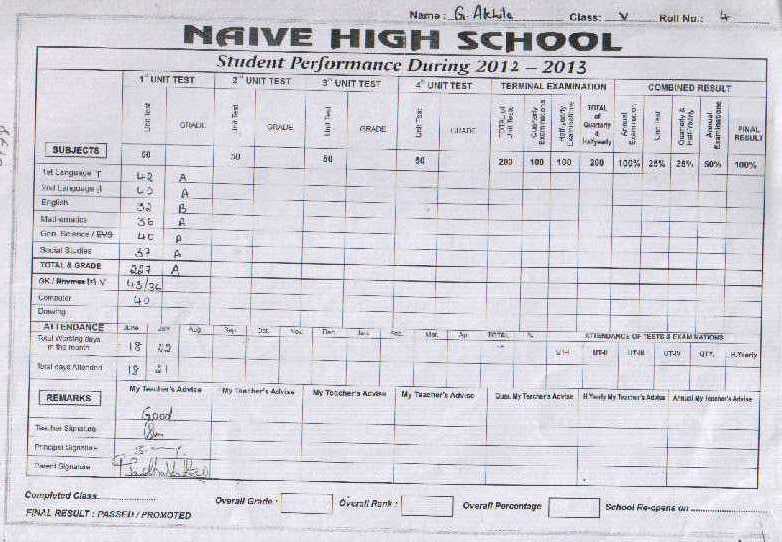 Name : G. Akhila Class: V Roll No.: 4
NAIVE HIGH SCHOOL
Student Performance During 2012 – 2013
1st UNIT TEST 2nd UNIT TEST 3rd UNIT TEST 4th UNIT TEST TERMINAL EXAMINATION COMBINED RESULT
SUBJECTS Unit Test GRADE Unit Test GRADE Unit Test GRADE Unit Test GRADE TOTAL of Unit Tests Quarterly Examinations Half-yearly Examinations TOTAL of Quarterly & Halfyearly Annual Examination Unit Test Quarterly & Half-Yearly Annual Examinations FINAL RESULT
50 50 50 50 200 100 100 200 100% 25% 25% 50% 100%
1st Language T 42 A
2nd Language H 40 A
English 32 B
Mathematics 36 A
Gen. Science / EVS 40 A
Social Studies 37 A
TOTAL & GRADE 227 A
GK / Rhymes M V 43/36
Computer 40
Drawing
ATTENDANCE June July Aug. Sep. Oct. Nov. Dec. Jan. Feb. Mar. Apr. TOTAL % ATTENDANCE OF TESTS & EXAMINATIONS
Total Working days in the month 18 22 UT-I UT-II UT-III UT-IV QTY. H.Yearly
Total days Attended 18 21
REMARKS My Teacher's Advise My Teacher's Advise My Teacher's Advise My Teacher's Advise Quar. My Teacher's Advise H.Yearly My Teacher's Advise Annual My Teacher's Advise
Good
Teacher Signature
Principal Signature
Parent Signature
Completed Class.............. Overall Grade : Overall Rank : Overall Percentage School Re-opens on ....................
FINAL RESULT : PASSED / PROMOTED